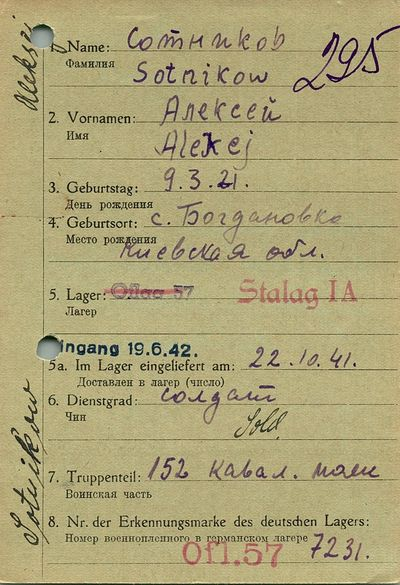 1. Name: Сотников
Фамилия
Sotnikow
295
2. Vornamen: Алексей
Имя
Alexej
3. Geburtstag: 9.3.21.
День рождения
4. Geburtsort: с. Богдановка
Место рождения
Киевская обл.
5. Lager: Oflag 57 Stalag IA
Лагер
ingang 19.6.42.
5a. Im Lager eingeliefert am: 22.10.41.
Доставлен в лагер (число)
6. Dienstgrad: солдат
Чин
Sold.
7. Truppenteil: 152 кавал.
Воинская часть
8. Nr. der Erkennungsmarke des deutschen Lagers:
Номер военнопленного в германском лагере 7231.
Ofl.57
Sotnikow
Aleksj